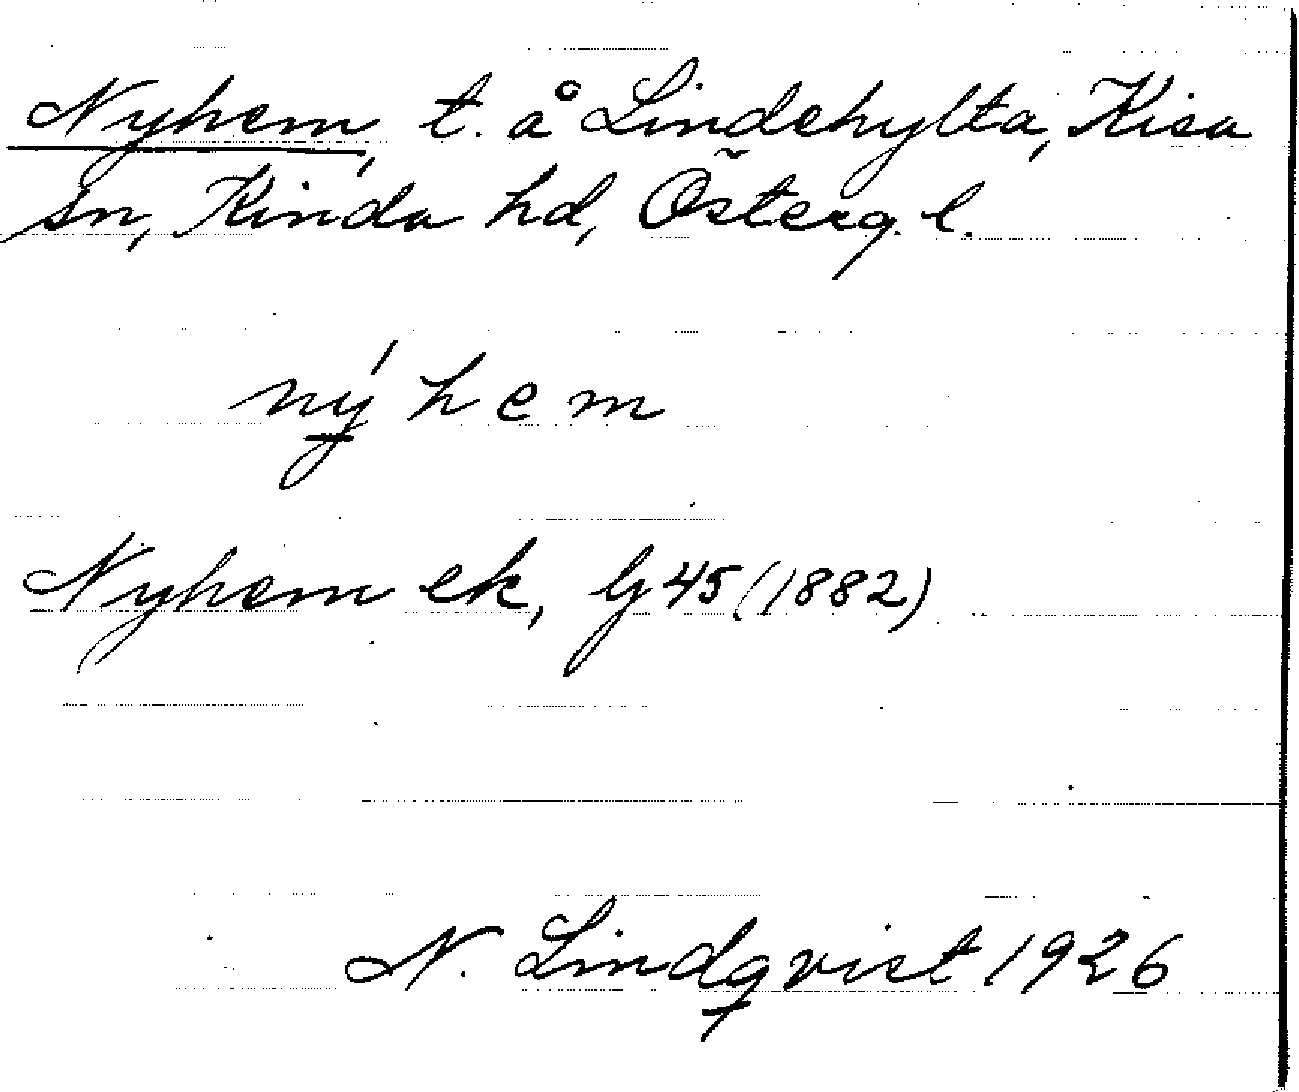 Nyhem, t. å Lindehylta, Kisa
sn, Kinda hd, Österg. l.
nýhem
Nyhem ek, Gj 45 (1882)
N. Lindqvist 1926